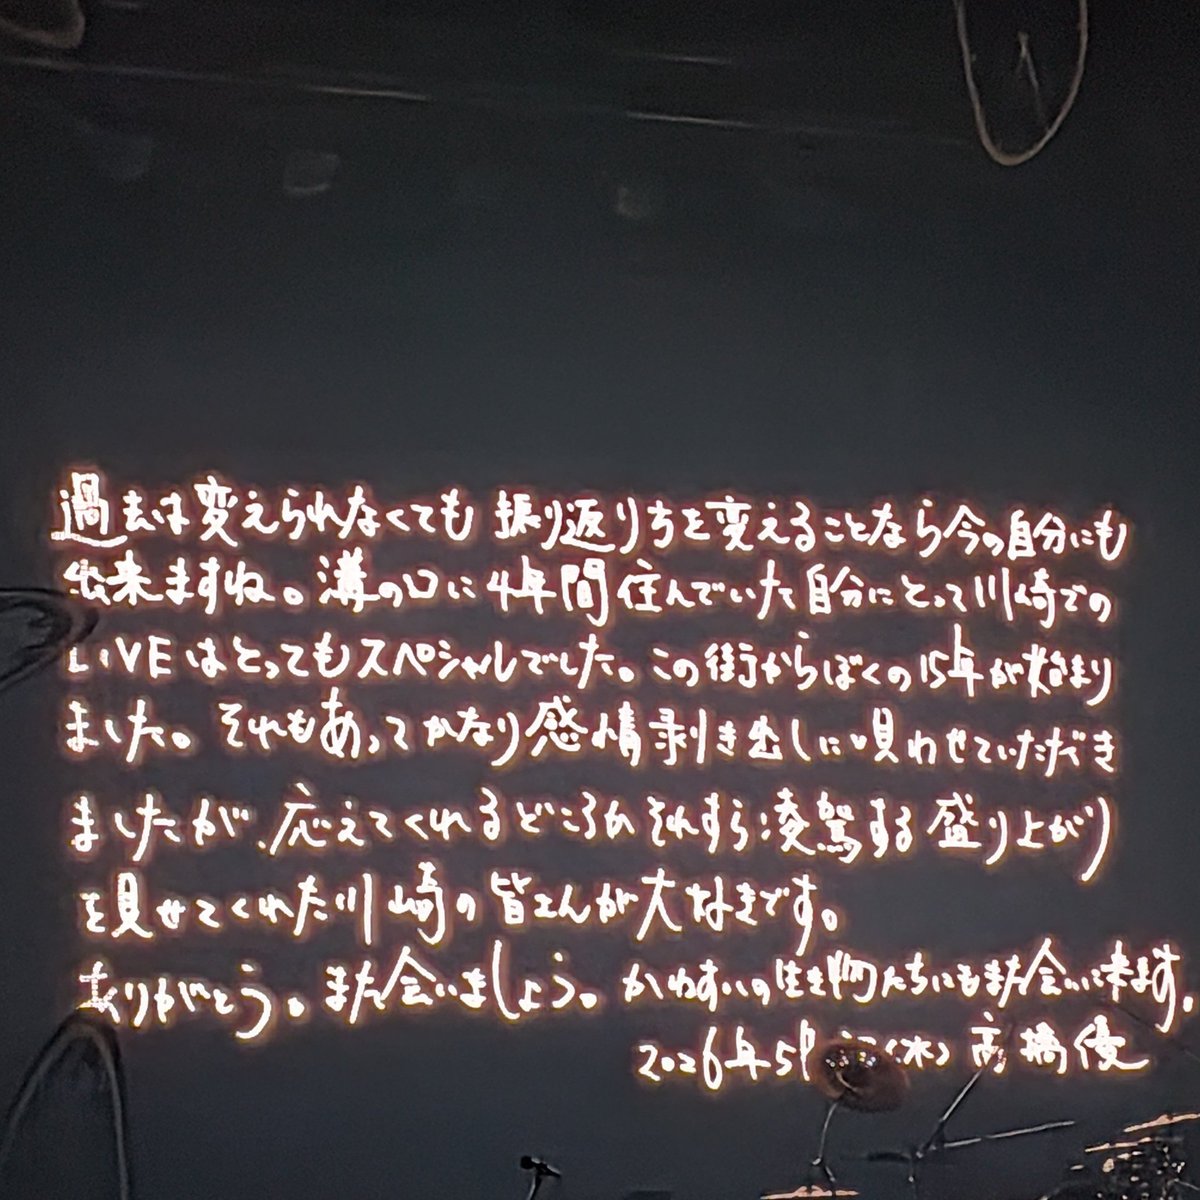 過去は変えられなくても 振り返り方を変えることなら今の自分にも
出来ますね。溝の口に4年間住んでいた自分にとって川崎での
LIVEはとってもスペシャルでした。この街からぼくの15年が始まり
ました。それもあってかなり感情剥き出しに唄わせていただき
ましたが、応えてくれるどころかそれすら凌駕する盛り上がり
を見せてくれた川崎の皆さんが大好きです。
ありがとう。また会いましょう。かわすいの生き物たちにもまた会いに来ます。
2026年5月 (木) 高橋優